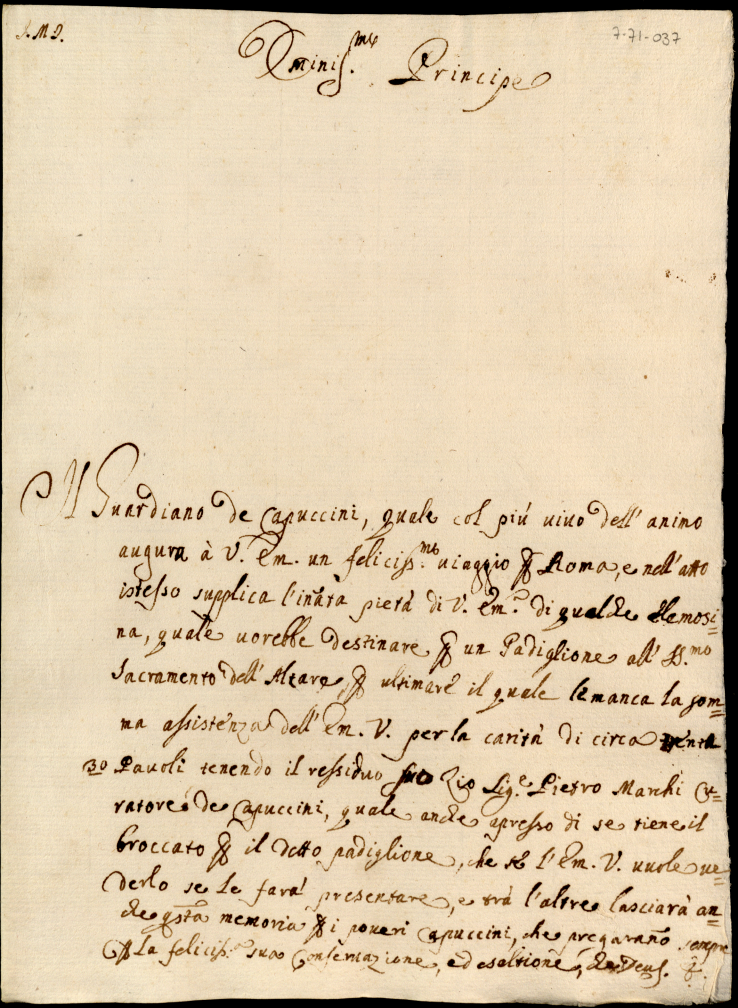 J. M. J.
7-71-037
Eminiss.mo Principe
Il Guardiano de Capuccini, quale col più vivo dell' animo
augura à V. Em. un feliciss.mo viaggio ꝑ Roma, e nell' atto
istesso supplica l'innatà pietà di V. Em.a di qualche Elemosi=
na, quale vorebbe destinare ꝑ un Padiglione all' SS.mo
Sacramento dell' Altare, ꝑ ultimare il quale le manca la som=
ma assistenza dell' Em. V. per la carità di circa trenta
30 Pavoli tenendo il ressiduo suo Zio Sig.e Pietro Marchi Cu=
ratore de Capuccini, quale anche apresso di se tiene il
broccato ꝑ il detto padiglione, che se l'Em. V. vuole ve=
derlo se le farà presentare, e trà l'altre lasciarà an=
che qsta memoria ꝑ i poveri Capuccini, che pregarano sempre
ꝑ la feliciss.a sua Conservazione, ed esaltione, Deus.